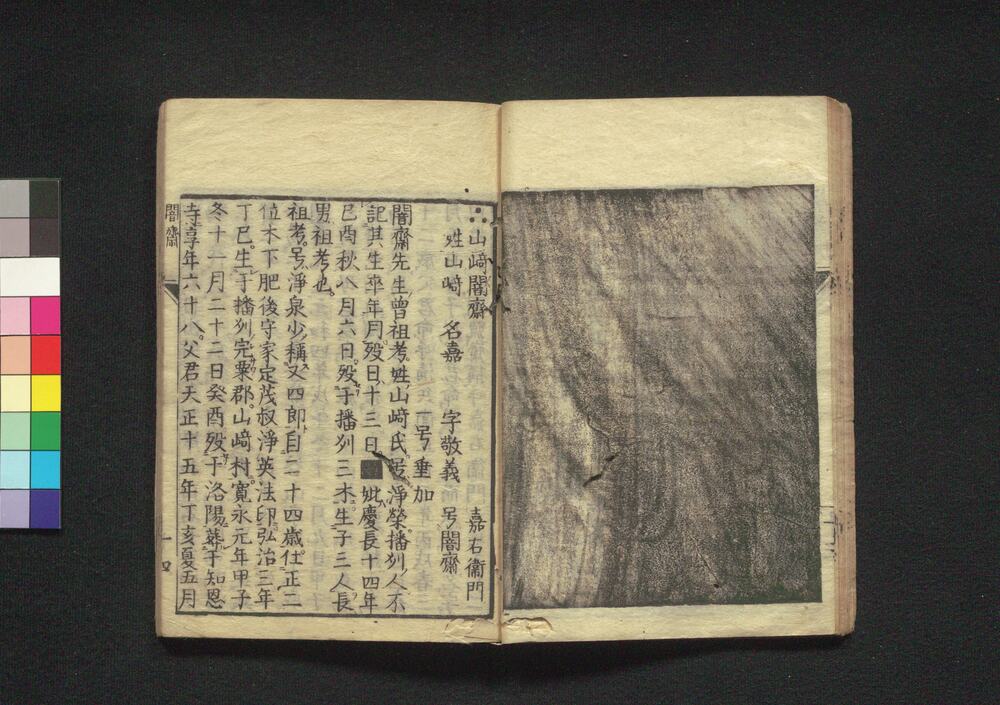 ∴山﨑闇齋　嘉右衞門
姓山﨑　名嘉　字敬義　号闇齋
一号垂加
闇齋先生曽祖考姓山﨑氏号淨榮播列人不
記其生卒年月歿日十三日■妣慶長十四年
已酉秋八月六日歿于播列三木生子三人長
男祖考也
祖考号淨泉少稱又四郎自二十四歳仕正二
位木下肥後守家定茂叔淨英法印弘治三年
丁巳生于播列完粟郡山﨑村寛永元年甲子
冬十一月二十二日癸酉歿于洛陽葬于知恩
寺享年六十八父君天正十五年丁亥夏五月
闇齋
一四